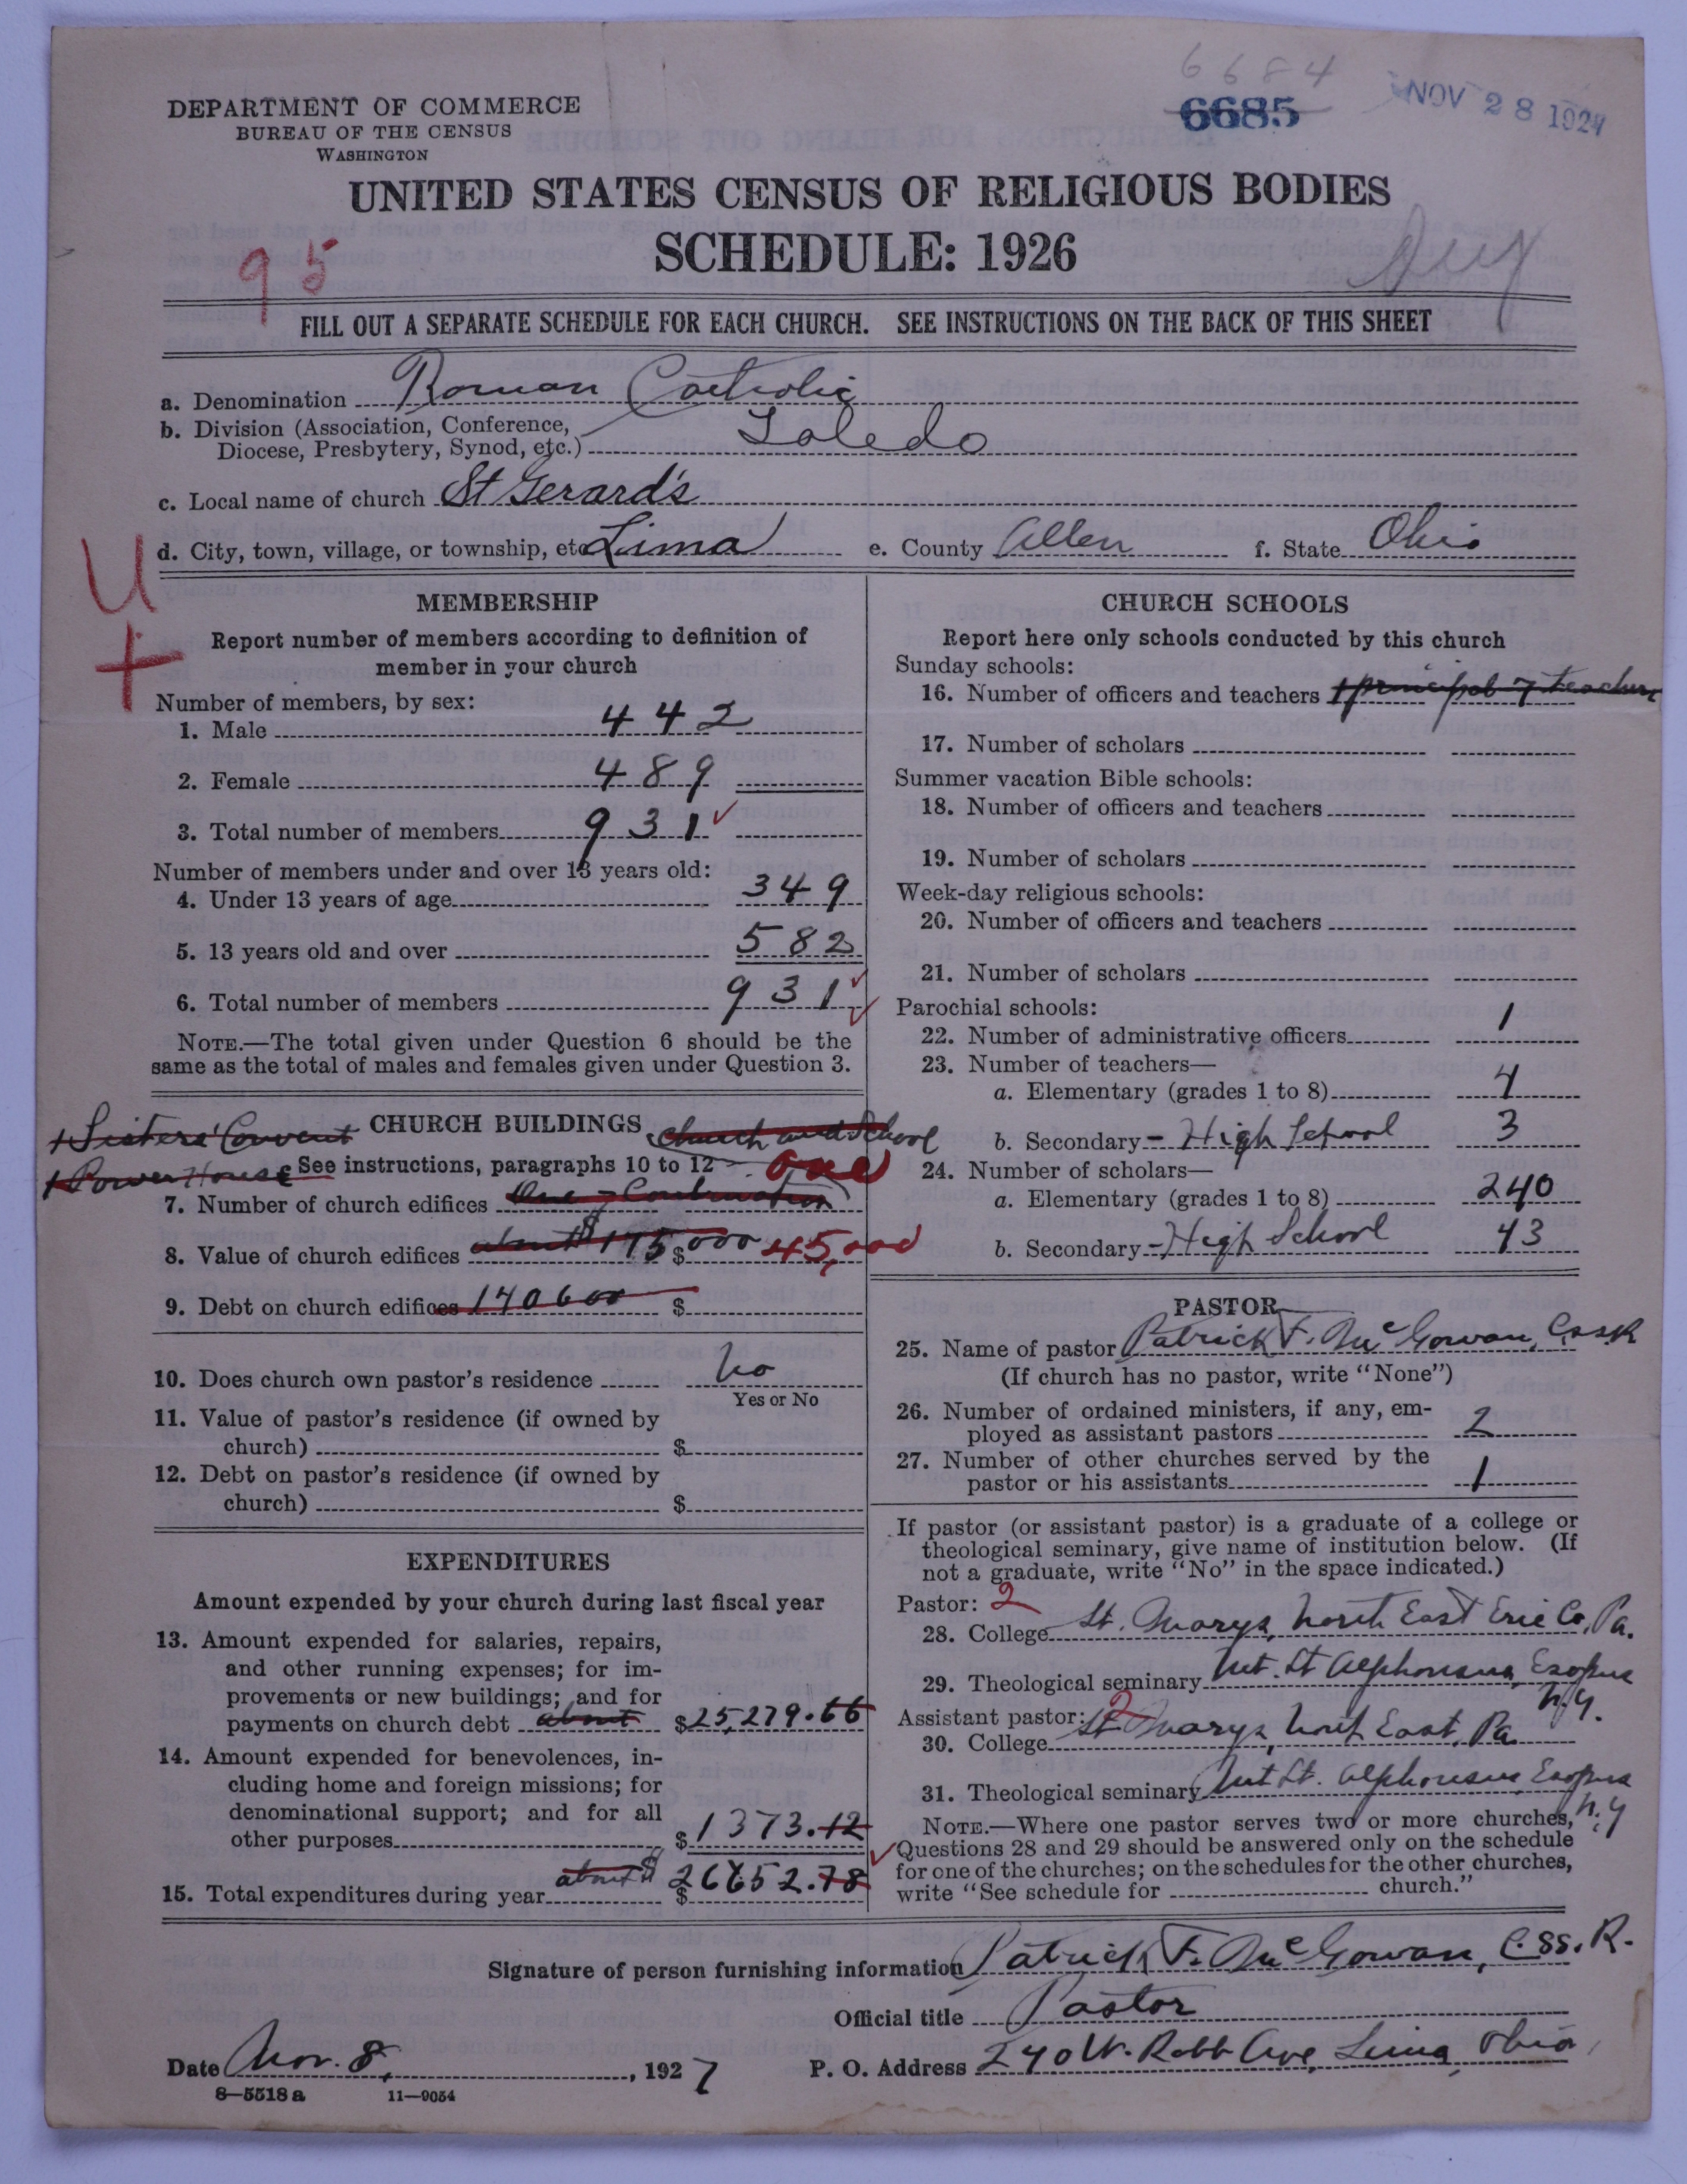 6684
6685
NOV 28 1927
DEPARTMENT OF COMMERCE
BUREAU OF THE CENSUS
WASHINGTON
UNITED STATES CENSUS OF RELIGIOUS BODIES
SCHEDULE: 1926
95
FILL OUT A SEPARATE SCHEDULE FOR EACH CHURCH. SEE INSTRUCTIONS ON THE BACK OF THIS SHEET
a. Denomination Roman Catholic
b. Division (Association, Conference,
Diocese, Presbytery, Synod, etc.) Toledo
c. Local name of church St Gerard's
d. City, town, village, or township, etc Lima e. County Allen f. State Ohio
U
+
MEMBERSHIP
Report number of members according to definition of
member in your church
Number of members, by sex:
1. Male 442
2. Female 489
3. Total number of members 931
Number of members under and over 13 years old:
4. Under 13 years of age 349
5. 13 years old and over 582
6. Total number of members 931
NOTE.—The total given under Question 6 should be the
same as the total of males and females given under Question 3.
1 Sisters' Convent CHURCH BUILDINGS church and School
1 Power House See instructions, paragraphs 10 to 12 one
7. Number of church edifices One - Combination
8. Value of church edifices about $175000 $ 45,000
9. Debt on church edifices 140600 $
10. Does church own pastor's residence No
Yes or No
11. Value of pastor's residence (if owned by
church) $
12. Debt on pastor's residence (if owned by
church) $
EXPENDITURES
Amount expended by your church during last fiscal year
13. Amount expended for salaries, repairs,
and other running expenses; for im-
provements or new buildings; and for
payments on church debt about $25,279.66
14. Amount expended for benevolences, in-
cluding home and foreign missions; for
denominational support; and for all
other purposes $1373.12
15. Total expenditures during year about $ $26652.78
CHURCH SCHOOLS
Report here only schools conducted by this church
Sunday schools:
16. Number of officers and teachers 1 principal 7 teachers
17. Number of scholars
Summer vacation Bible schools:
18. Number of officers and teachers
19. Number of scholars
Week-day religious schools:
20. Number of officers and teachers
21. Number of scholars
Parochial schools:
22. Number of administrative officers 1
23. Number of teachers—
a. Elementary (grades 1 to 8) 4
b. Secondary - High School 3
24. Number of scholars—
a. Elementary (grades 1 to 8) 240
b. Secondary - High School 43
PASTOR
25. Name of pastor Patrick F. McGowan, C.SS.R
(If church has no pastor, write "None")
26. Number of ordained ministers, if any, em-
ployed as assistant pastors 2
27. Number of other churches served by the
pastor or his assistants 1
If pastor (or assistant pastor) is a graduate of a college or
theological seminary, give name of institution below. (If
not a graduate, write "No" in the space indicated.)
Pastor: 2
28. College St. Marys, North East Erie Co, Pa.
29. Theological seminary Mt. St Alphonsus, Esopus
N.Y.
Assistant pastor: 2
30. College St Marys, North East, Pa
31. Theological seminary Mt St. Alphonsus, Esopus
N.Y
NOTE.—Where one pastor serves two or more churches,
Questions 28 and 29 should be answered only on the schedule
for one of the churches; on the schedules for the other churches,
write "See schedule for church."
Signature of person furnishing information Patrick F. McGowan, C.SS.R.
Official title Pastor
Date Nov. 8, 1927 P. O. Address 240 W. Robb Ave, Lima, Ohio,
8—5518 a 11—9054